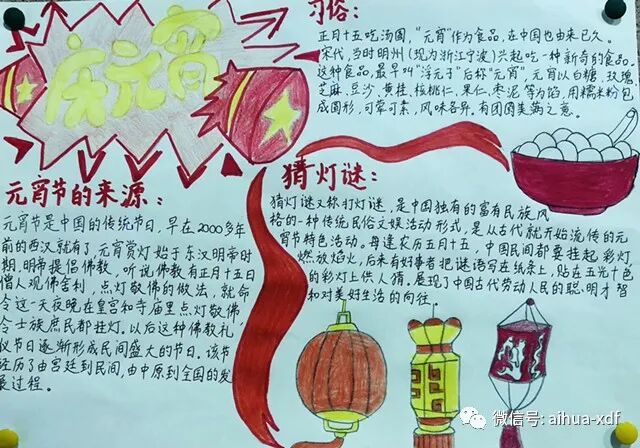 庆元宵
习俗:
正月十五吃汤圆,"元宵"作为食品,在中国也由来已久。
宋代,当时明州(现为浙江宁波)兴起吃一种新奇的食品。
这种食品,最早叫"浮元子"后称"元宵",元宵以白糖、玫瑰
芝麻、豆沙、黄桂、核桃仁、果仁、枣泥等为馅,用糯米粉包
成圆形,可荤可素,风味各异。有团圆美满之意。
元宵节的来源:
元宵节是中国的传统节日,早在2000多年
前的西汉就有了元宵赏灯始于东汉明帝时
期,明帝提倡佛教,听说佛教有正月十五日
僧人观佛舍利,点灯敬佛的做法,就命
令这一天夜晚在皇宫和寺庙里点灯敬佛
令士族庶民都挂灯。以后这种佛教礼
仪节日逐渐形成民间盛大的节日。该节
经历了由宫廷到民间,由中原到全国的发
展过程。
猜灯谜:
猜灯谜又称打灯谜,是中国独有的富有民族风
格的一种传统民俗文娱活动形式,是从古代就开始流传的元
宵节特色活动。每逢农历五月十五,中国民间都要挂起彩灯
燃放焰火,后来有好事者把谜语写在纸条上,贴在五光十色
的彩灯上供人猜。展现了中国古代劳动人民的聪明才智
和对美好生活的向往
微信号: aihua-xdf